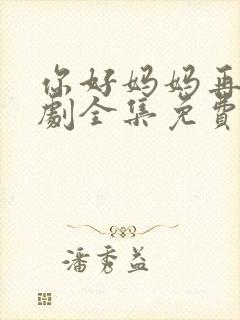 你好妈妈再
劇全集免費
潘秀益